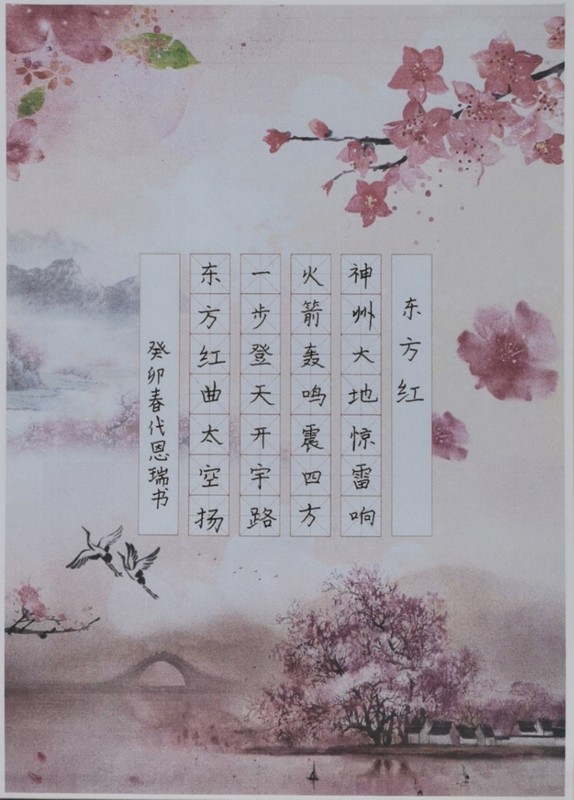 东方红
神州大地惊雷响
火箭轰鸣震四方
一步登天开宇路
东方红曲太空扬
癸卯春代恩瑞书